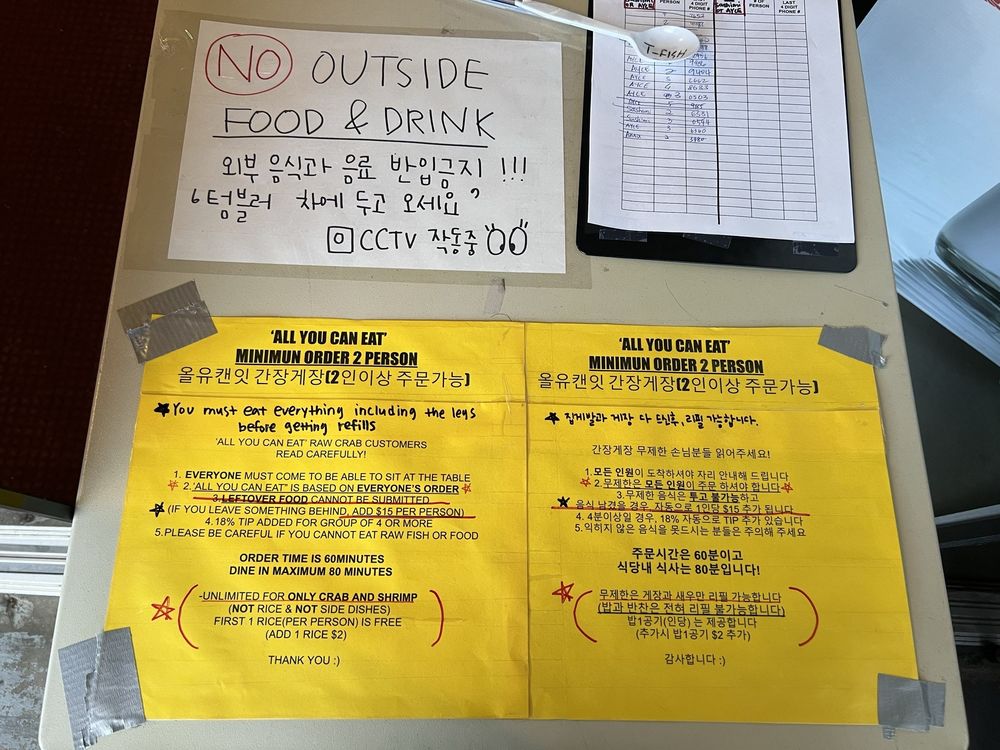 NO OUTSIDE
FOOD & DRINK
외부 음식과 음료 반입금지 !!!
텀블러 차에 두고 오세요
CCTV 작동중
T-FISH
OR AYCE
PERSON
4 DIGIT
PHONE #
# OF
PERSON
LAST
4 DIGIT
PHONE #
'ALL YOU CAN EAT'
MINIMUN ORDER 2 PERSON
올유캔잇 간장게장(2인이상 주문가능)
★You must eat everything including the legs
before getting refills
'ALL YOU CAN EAT' RAW CRAB CUSTOMERS
READ CAREFULLY!
1. EVERYONE MUST COME TO BE ABLE TO SIT AT THE TABLE
☆ 2. 'ALL YOU CAN EAT' IS BASED ON EVERYONE'S ORDER ☆
3. LEFTOVER FOOD CANNOT BE SUBMITTED
★ (IF YOU LEAVE SOMETHING BEHIND, ADD $15 PER PERSON)
4. 18% TIP ADDED FOR GROUP OF 4 OR MORE
5. PLEASE BE CAREFUL IF YOU CANNOT EAT RAW FISH OR FOOD
ORDER TIME IS 60MINUTES
DINE IN MAXIMUM 80 MINUTES
-UNLIMITED FOR ONLY CRAB AND SHRIMP
(NOT RICE & NOT SIDE DISHES)
FIRST 1 RICE(PER PERSON) IS FREE
(ADD 1 RICE $2)
THANK YOU :)
'ALL YOU CAN EAT'
MINIMUN ORDER 2 PERSON
올유캔잇 간장게장(2인이상 주문가능)
★ 집게발과 게장 다 드신후, 리필 가능합니다.
간장게장 무제한 손님분들 읽어주세요!
1. 모든 인원이 도착하셔야 자리 안내해 드립니다
☆ 2. 무제한은 모든 인원이 주문 하셔야 합니다 ☆
3. 무제한 음식은 투고 불가능하고
★ 음식 남겼을 경우, 자동으로 1인당 $15 추가 됩니다
4. 4분이상일 경우, 18% 자동으로 TIP 추가 있습니다
5. 익히지 않은 음식을 못드시는 분들은 주의해 주세요
주문시간은 60분이고
식당내 식사는 80분입니다!
무제한은 게장과 새우만 리필 가능합니다
(밥과 반찬은 전혀 리필 불가능합니다)
밥1공기(인당) 는 제공합니다
(추가시 밥1공기 $2 추가)
감사합니다 :)